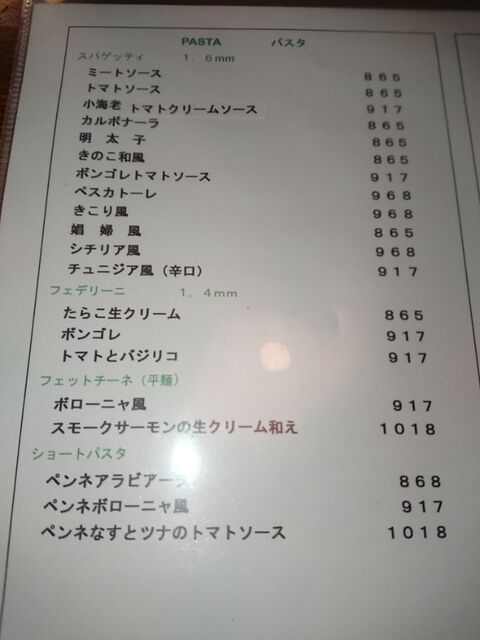 PASTA パスタ
スパゲッティ 1.6mm
ミートソース 865
トマトソース 865
小海老 トマトクリームソース 917
カルボナーラ 865
明太子 865
きのこ和風 865
ボンゴレトマトソース 917
ペスカトーレ 968
きこり風 968
娼婦風 865
シチリア風 968
チュニジア風（辛口） 917
フェデリーニ 1.4mm
たらこ生クリーム 865
ボンゴレ 917
トマトとバジリコ 917
フェットチーネ（平麺）
ボローニャ風 917
スモークサーモンの生クリーム和え 1018
ショートパスタ
ペンネアラビアータ 868
ペンネボローニャ風 917
ペンネなすとツナのトマトソース 1018